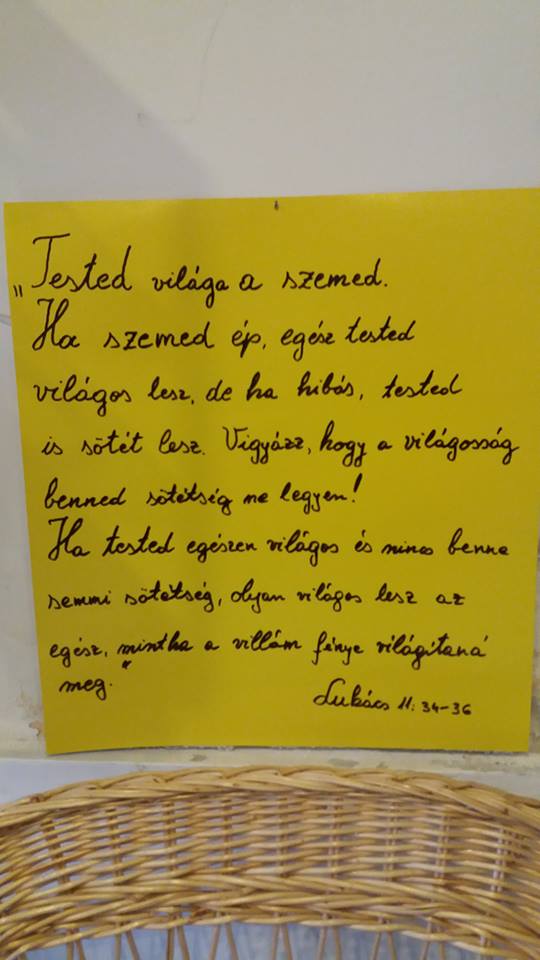 „Tested világa a szemed.
Ha szemed ép, egész tested
világos lesz, de ha hibás, tested
is sötét lesz. Vigyázz, hogy a világosság
benned sötétség ne legyen!
Ha tested egészen világos és nincs benne
semmi sötétség, olyan világos lesz az
egész, mintha a villám fénye világítaná
meg.”
Lukács 11: 34-36